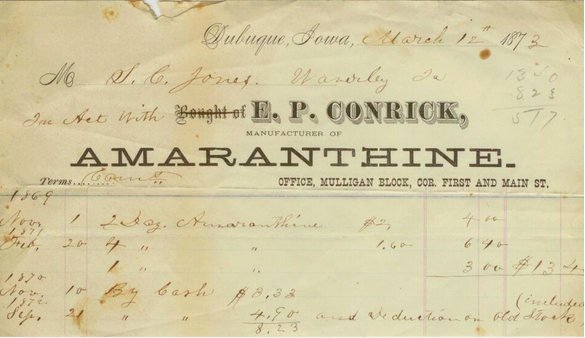 Dubuque, Iowa, March 12" 1873
M S. C. Jones. Waverley Ia
13 40
8.23
5 17
In Act With Bought of E. P. CONRICK,
MANUFACTURER OF
AMARANTHINE.
Terms.
OFFICE, MULLIGAN BLOCK, COR. FIRST AND MAIN ST.
1869
Nov. 1 2 Doz. Amaranthine $2, 4 00
1871
Feb. 20 4 " " 1.60 6 40
1 " " 3 00 $13 4
1870
Nov. 10 By Cash $3.33 (included
1872
Sep. 21 " " 4.90 and deduction on old Stock
8.23